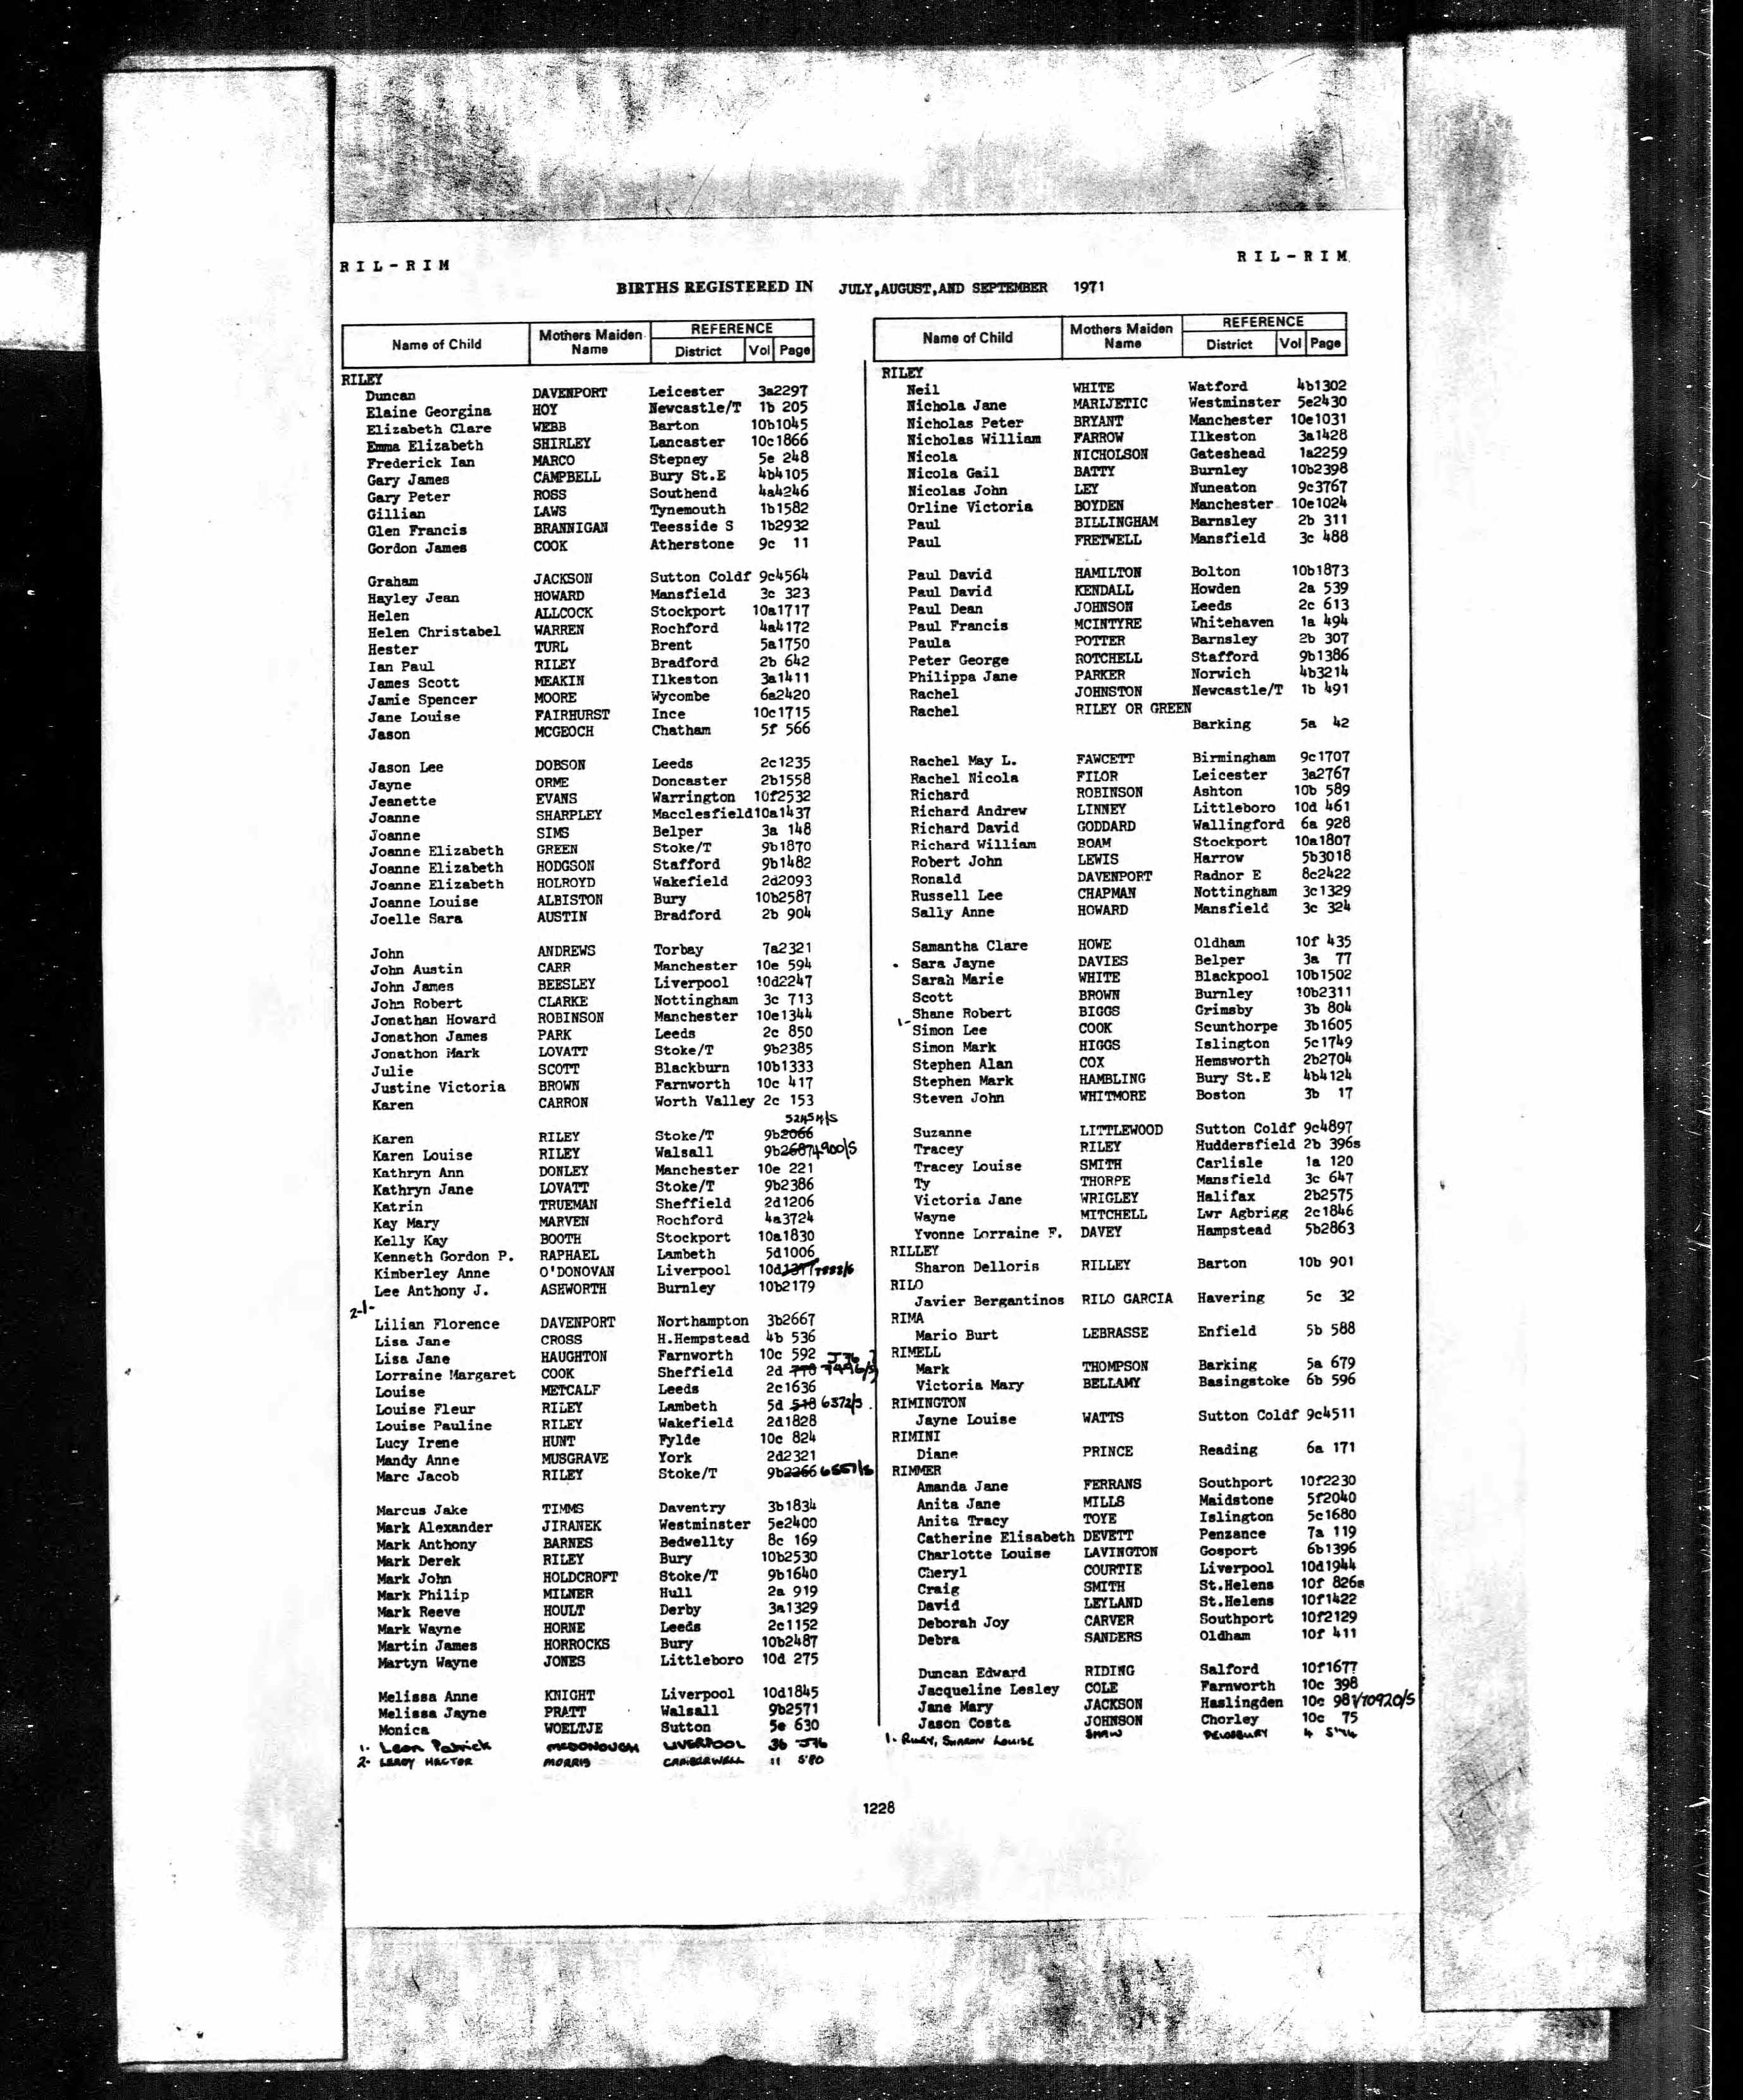 RIL-RIM
RIL-RIM
BIRTHS REGISTERED IN JULY,AUGUST,AND SEPTEMBER 1971
Name of Child Mothers Maiden Name REFERENCE District Vol Page
RILEY
Duncan DAVENPORT Leicester 3a2297
Elaine Georgina HOY Newcastle/T 1b 205
Elizabeth Clare WEBB Barton 10b1045
Emma Elizabeth SHIRLEY Lancaster 10c1866
Frederick Ian MARCO Stepney 5e 248
Gary James CAMPBELL Bury St.E 4b4105
Gary Peter ROSS Southend 4a4246
Gillian LAWS Tynemouth 1b1582
Glen Francis BRANNIGAN Teesside S 1b2932
Gordon James COOK Atherstone 9c 11
Graham JACKSON Sutton Coldf 9c4564
Hayley Jean HOWARD Mansfield 3c 323
Helen ALLCOCK Stockport 10a1717
Helen Christabel WARREN Rochford 4a4172
Hester TURL Brent 5a1750
Ian Paul RILEY Bradford 2b 642
James Scott MEAKIN Ilkeston 3a1411
Jamie Spencer MOORE Wycombe 6a2420
Jane Louise FAIRHURST Ince 10c1715
Jason MCGEOCH Chatham 5f 566
Jason Lee DOBSON Leeds 2c1235
Jayne ORME Doncaster 2b1558
Jeanette EVANS Warrington 10f2532
Joanne SHARPLEY Macclesfield10a1437
Joanne SIMS Belper 3a 148
Joanne Elizabeth GREEN Stoke/T 9b1870
Joanne Elizabeth HODGSON Stafford 9b1482
Joanne Elizabeth HOLROYD Wakefield 2d2093
Joanne Louise ALBISTON Bury 10b2587
Joelle Sara AUSTIN Bradford 2b 904
John ANDREWS Torbay 7a2321
John Austin CARR Manchester 10e 594
John James BEESLEY Liverpool 10d2247
John Robert CLARKE Nottingham 3c 713
Jonathan Howard ROBINSON Manchester 10e1344
Jonathon James PARK Leeds 2c 850
Jonathon Mark LOVATT Stoke/T 9b2385
Julie SCOTT Blackburn 10b1333
Justine Victoria BROWN Farnworth 10c 417
Karen CARRON Worth Valley 2c 153
Karen RILEY Stoke/T 9b2066
Karen Louise RILEY Walsall 9b2687 4900/S
Kathryn Ann DONLEY Manchester 10e 221
Kathryn Jane LOVATT Stoke/T 9b2386
Katrin TRUEMAN Sheffield 2d1206
Kay Mary MARVEN Rochford 4a3724
Kelly Kay BOOTH Stockport 10a1830
Kenneth Gordon P. RAPHAEL Lambeth 5d1006
Kimberley Anne O'DONOVAN Liverpool 10d
Lee Anthony J. ASHWORTH Burnley 10b2179
2-1-
Lilian Florence DAVENPORT Northampton 3b2667
Lisa Jane CROSS H.Hempstead 4b 536
Lisa Jane HAUGHTON Farnworth 10c 592
Lorraine Margaret COOK Sheffield 2d
Louise METCALF Leeds 2c1636
Louise Fleur RILEY Lambeth 5d 518 6372/S
Louise Pauline RILEY Wakefield 2d1828
Lucy Irene HUNT Fylde 10c 824
Mandy Anne MUSGRAVE York 2d2321
Marc Jacob RILEY Stoke/T 9b2266 6557/S
Marcus Jake TIMMS Daventry 3b1834
Mark Alexander JIRANEK Westminster 5e2400
Mark Anthony BARNES Bedwellty 8c 169
Mark Derek RILEY Bury 10b2530
Mark John HOLDCROFT Stoke/T 9b1640
Mark Philip MILNER Hull 2a 919
Mark Reeve HOULT Derby 3a1329
Mark Wayne HORNE Leeds 2c1152
Martin James HORROCKS Bury 10b2487
Martyn Wayne JONES Littleboro 10d 275
Melissa Anne KNIGHT Liverpool 10d1845
Melissa Jayne PRATT Walsall 9b2571
Monica WOELTJE Sutton 5e 630
1- Leon Patrick McDONOUGH LIVERPOOL 36 J76
2- LEROY HECTOR MORRIS CAMBERWELL 11 S'80
Name of Child Mothers Maiden Name REFERENCE District Vol Page
RILEY
Neil WHITE Watford 4b1302
Nichola Jane MARIJETIC Westminster 5e2430
Nicholas Peter BRYANT Manchester 10e1031
Nicholas William FARROW Ilkeston 3a1428
Nicola NICHOLSON Gateshead 1a2259
Nicola Gail BATTY Burnley 10b2398
Nicolas John LEY Nuneaton 9c3767
Orline Victoria BOYDEN Manchester 10e1024
Paul BILLINGHAM Barnsley 2b 311
Paul FRETWELL Mansfield 3c 488
Paul David HAMILTON Bolton 10b1873
Paul David KENDALL Howden 2a 539
Paul Dean JOHNSON Leeds 2c 613
Paul Francis MCINTYRE Whitehaven 1a 494
Paula POTTER Barnsley 2b 307
Peter George ROTCHELL Stafford 9b1386
Philippa Jane PARKER Norwich 4b3214
Rachel JOHNSTON Newcastle/T 1b 491
Rachel RILEY OR GREEN
Barking 5a 42
Rachel May L. FAWCETT Birmingham 9c1707
Rachel Nicola FILOR Leicester 3a2767
Richard ROBINSON Ashton 10b 589
Richard Andrew LINNEY Littleboro 10d 461
Richard David GODDARD Wallingford 6a 928
Richard William BOAM Stockport 10a1807
Robert John LEWIS Harrow 5b3018
Ronald DAVENPORT Radnor E 8c2422
Russell Lee CHAPMAN Nottingham 3c1329
Sally Anne HOWARD Mansfield 3c 324
Samantha Clare HOWE Oldham 10f 435
Sara Jayne DAVIES Belper 3a 77
Sarah Marie WHITE Blackpool 10b1502
Scott BROWN Burnley 10b2311
Shane Robert BIGGS Grimsby 3b 804
1- Simon Lee COOK Scunthorpe 3b1605
Simon Mark HIGGS Islington 5c1749
Stephen Alan COX Hemsworth 2b2704
Stephen Mark HAMBLING Bury St.E 4b4124
Steven John WHITMORE Boston 3b 17
Suzanne LITTLEWOOD Sutton Coldf 9c4897
Tracey RILEY Huddersfield 2b 396s
Tracey Louise SMITH Carlisle 1a 120
Ty THORPE Mansfield 3c 647
Victoria Jane WRIGLEY Halifax 2b2575
Wayne MITCHELL Lwr Agbrigg 2c1846
Yvonne Lorraine F. DAVEY Hampstead 5b2863
RILLEY
Sharon Delloris RILLEY Barton 10b 901
RILO
Javier Bergantinos RILO GARCIA Havering 5c 32
RIMA
Mario Burt LEBRASSE Enfield 5b 588
RIMELL
Mark THOMPSON Barking 5a 679
Victoria Mary BELLAMY Basingstoke 6b 596
RIMINGTON
Jayne Louise WATTS Sutton Coldf 9c4511
RIMINI
Diane PRINCE Reading 6a 171
RIMMER
Amanda Jane FERRANS Southport 10f2230
Anita Jane MILLS Maidstone 5f2040
Anita Tracy TOYE Islington 5c1680
Catherine Elisabeth DEVETT Penzance 7a 119
Charlotte Louise LAVINGTON Gosport 6b1396
Cheryl COURTIE Liverpool 10d1944
Craig SMITH St.Helens 10f 826s
David LEYLAND St.Helens 10f1422
Deborah Joy CARVER Southport 10f2129
Debra SANDERS Oldham 10f 411
Duncan Edward RIDING Salford 10f1677
Jacqueline Lesley COLE Farnworth 10c 398
Jane Mary JACKSON Haslingden 10c 981/10920/S
Jason Costa JOHNSON Chorley 10c 75
1- RILEY, SHARON LOUISE SHAW
1228